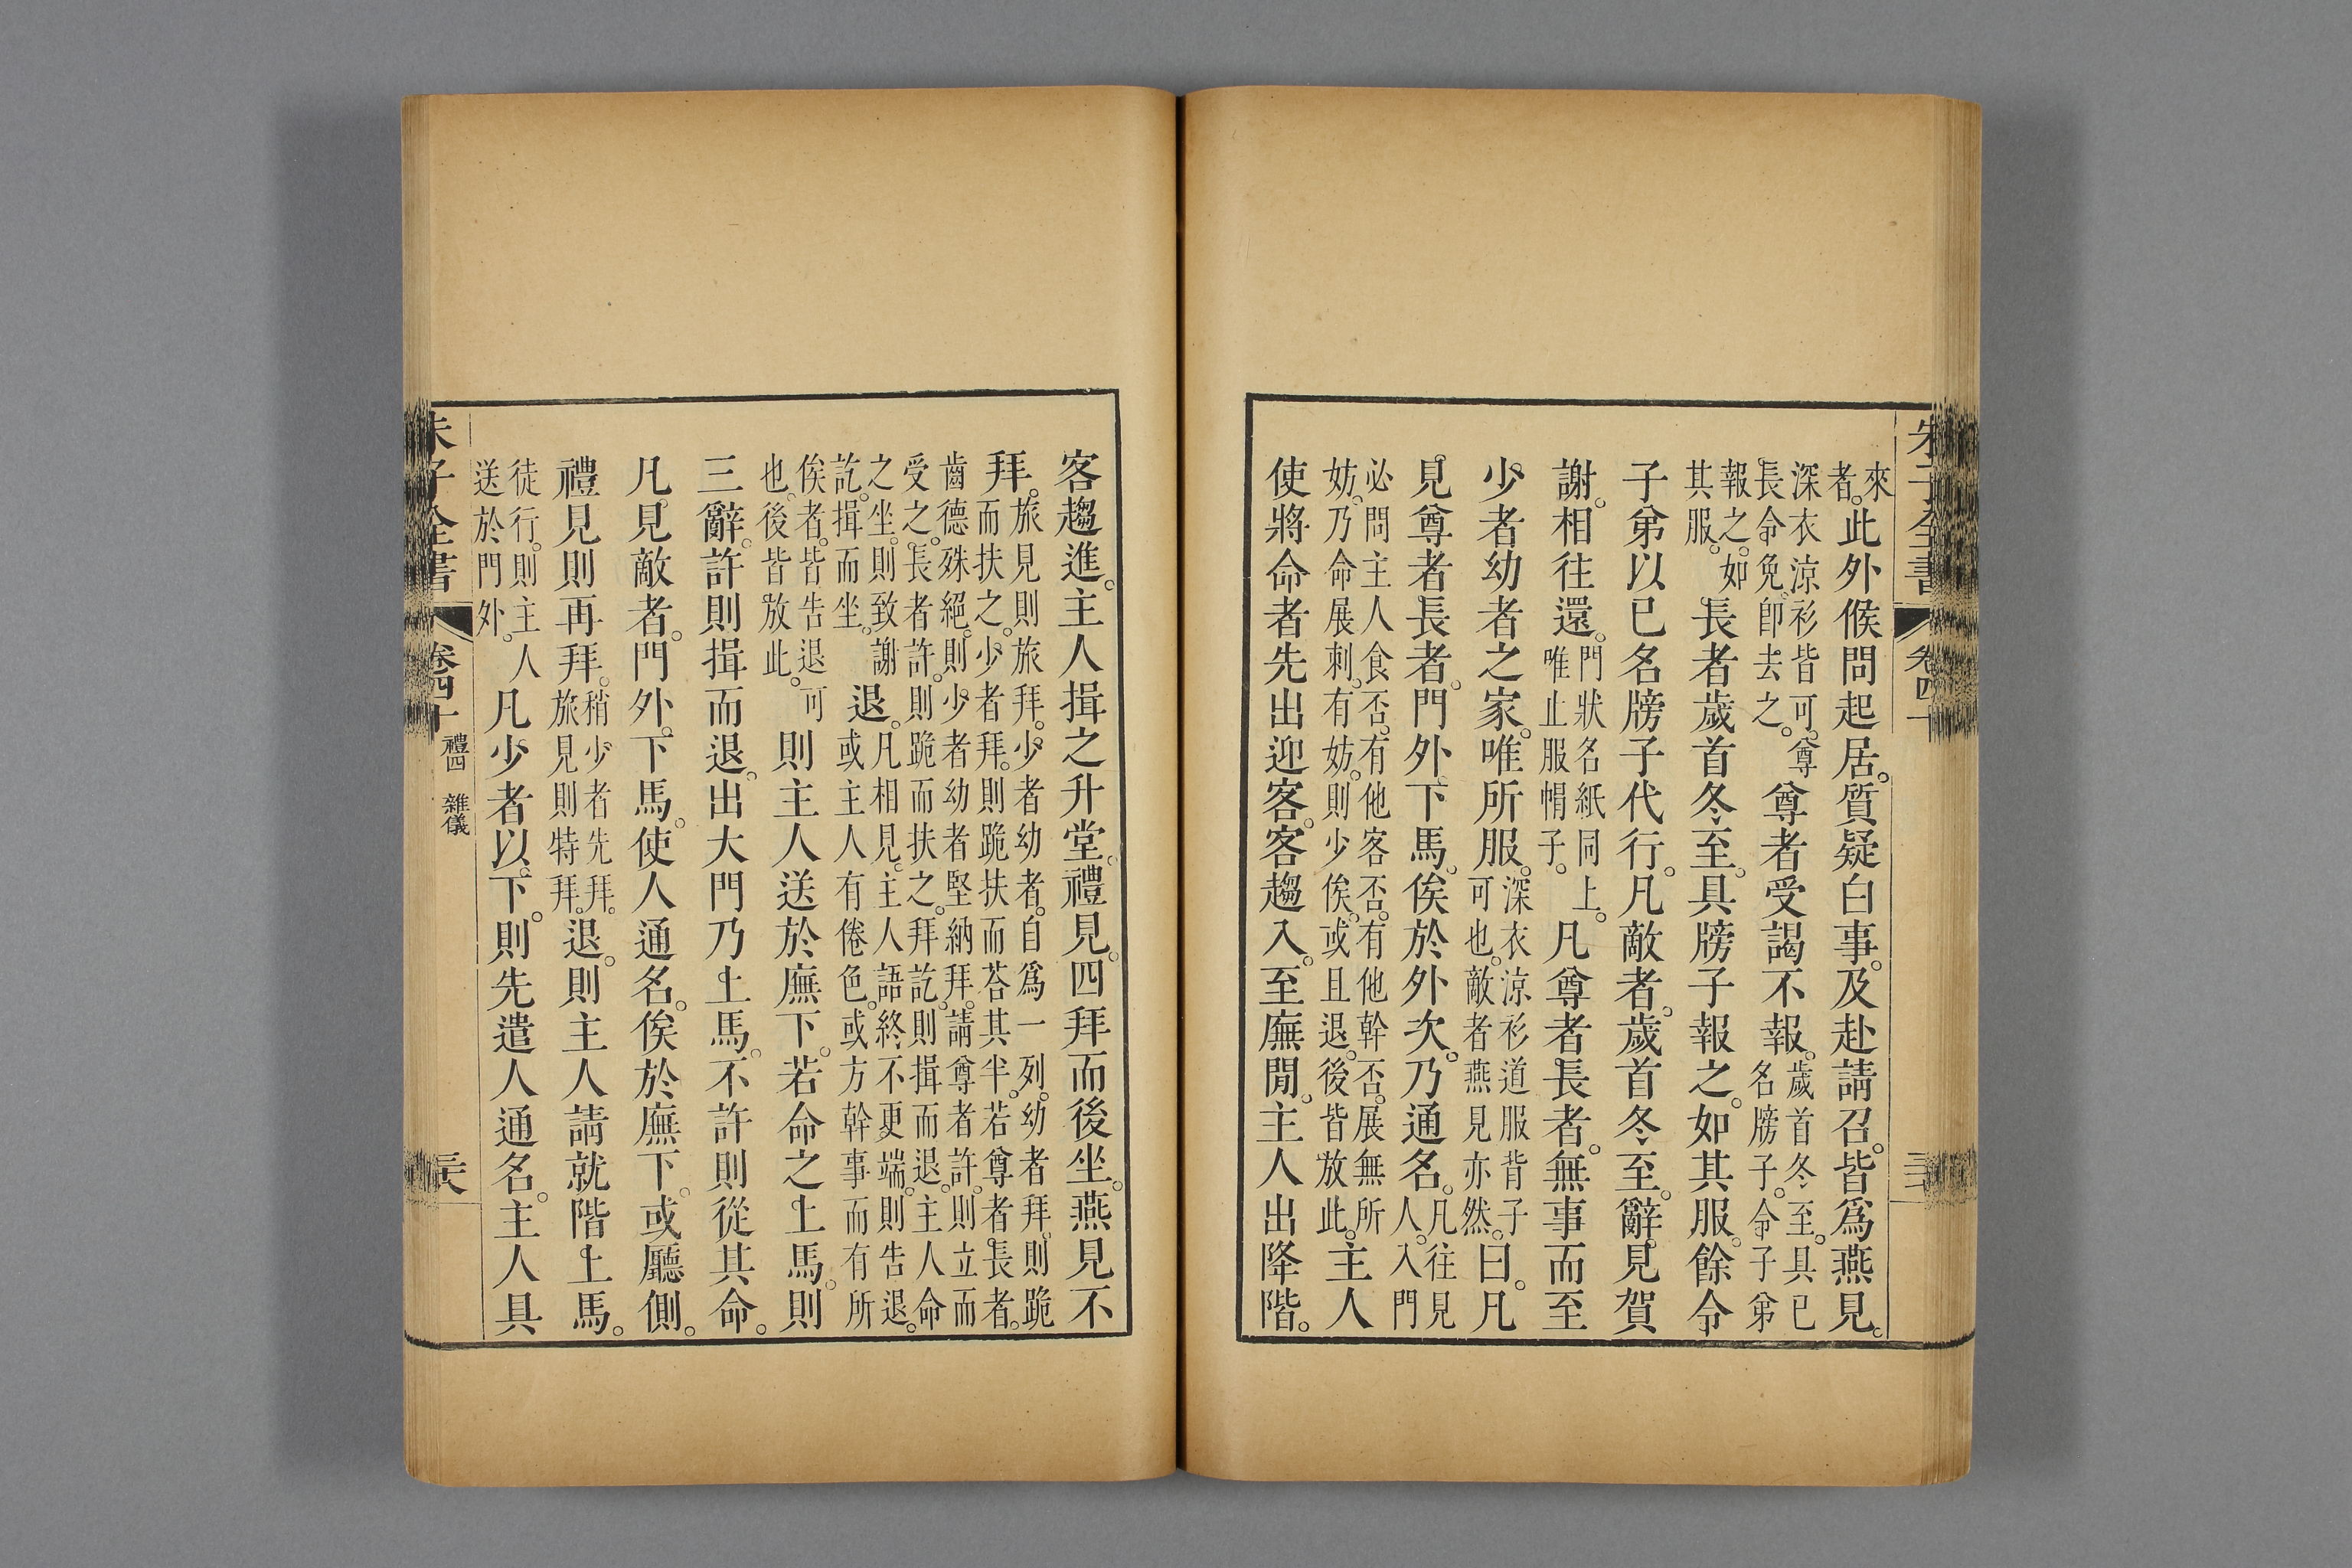 來者。此外候問起居。質疑白事。及赴請召。皆爲燕見。
深衣涼衫皆可。尊長令免。卽去之。尊者受謁不報。歲首冬至。具已名牓子。令子弟
報之。如其服。長者歲首冬至。具牓子報之。如其服。餘令
子弟以已名牓子代行。凡敵者。歲首冬至。辭見賀
謝。相往還。門狀名紙同上。唯止服帽子。凡尊者長者。無事而至
少者幼者之家。唯所服。深衣涼衫道服背子可也。敵者燕見亦然。曰。凡
見尊者長者。門外下馬。俟於外次。乃通名。凡往見人。入門
必問主人食否。有他客否。有他幹否。展無所妨。乃命展刺。有妨。則少俟。或且退。後皆放此。主人
使將命者先出迎客。客趨入。至廡間。主人出降階。
客趨進。主人揖之升堂。禮見。四拜而後坐。燕見不
拜。旅見則旅拜。少者幼者。自爲一列。幼者拜。則跪而扶之。少者拜。則跪扶而荅其半。若尊者。長者。
齒德殊絕。則少者幼者堅納拜。請尊者許。則立而受之。長者許。則跪而扶之。拜訖。則揖而退。主人命
之坐。則致謝訖。揖而坐。退。凡相見。主人語終。不更端。則告退。或主人有倦色。或方幹事而有所
俟者。皆告退可也。後皆放此。則主人送於廡下。若命之上馬。則
三辭。許則揖而退。出大門乃上馬。不許則從其命。
凡見敵者。門外下馬。使人通名。俟於廡下。或廳側。
禮見則再拜。稍少者先拜。旅見則特拜。退。則主人請就階上馬。
徒行。則主人送於門外。凡少者以下。則先遣人通名。主人具
朱子全書 卷四十 禮四 雜儀